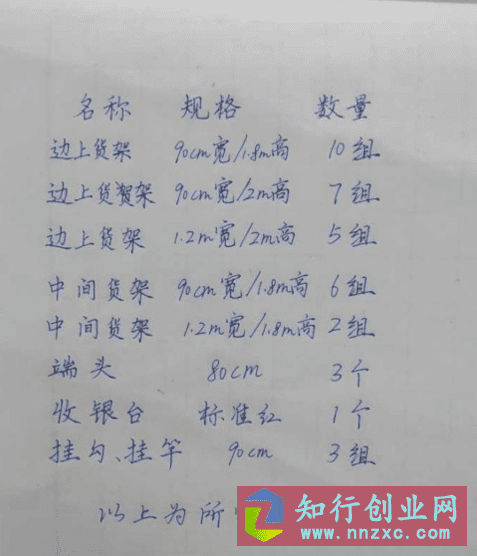 名称 规格 数量
边上货架 90cm宽/1.8m高 10组
边上货架 90cm宽/2m高 7组
边上货架 1.2m宽/2m高 5组
中间货架 90cm宽/1.8m高 6组
中间货架 1.2m宽/1.8m高 2组
端头 80cm 3个
收银台 标准红 1个
挂勾、挂竿 90cm 3组
以上为所
知行创业网
www.nnzxc.com